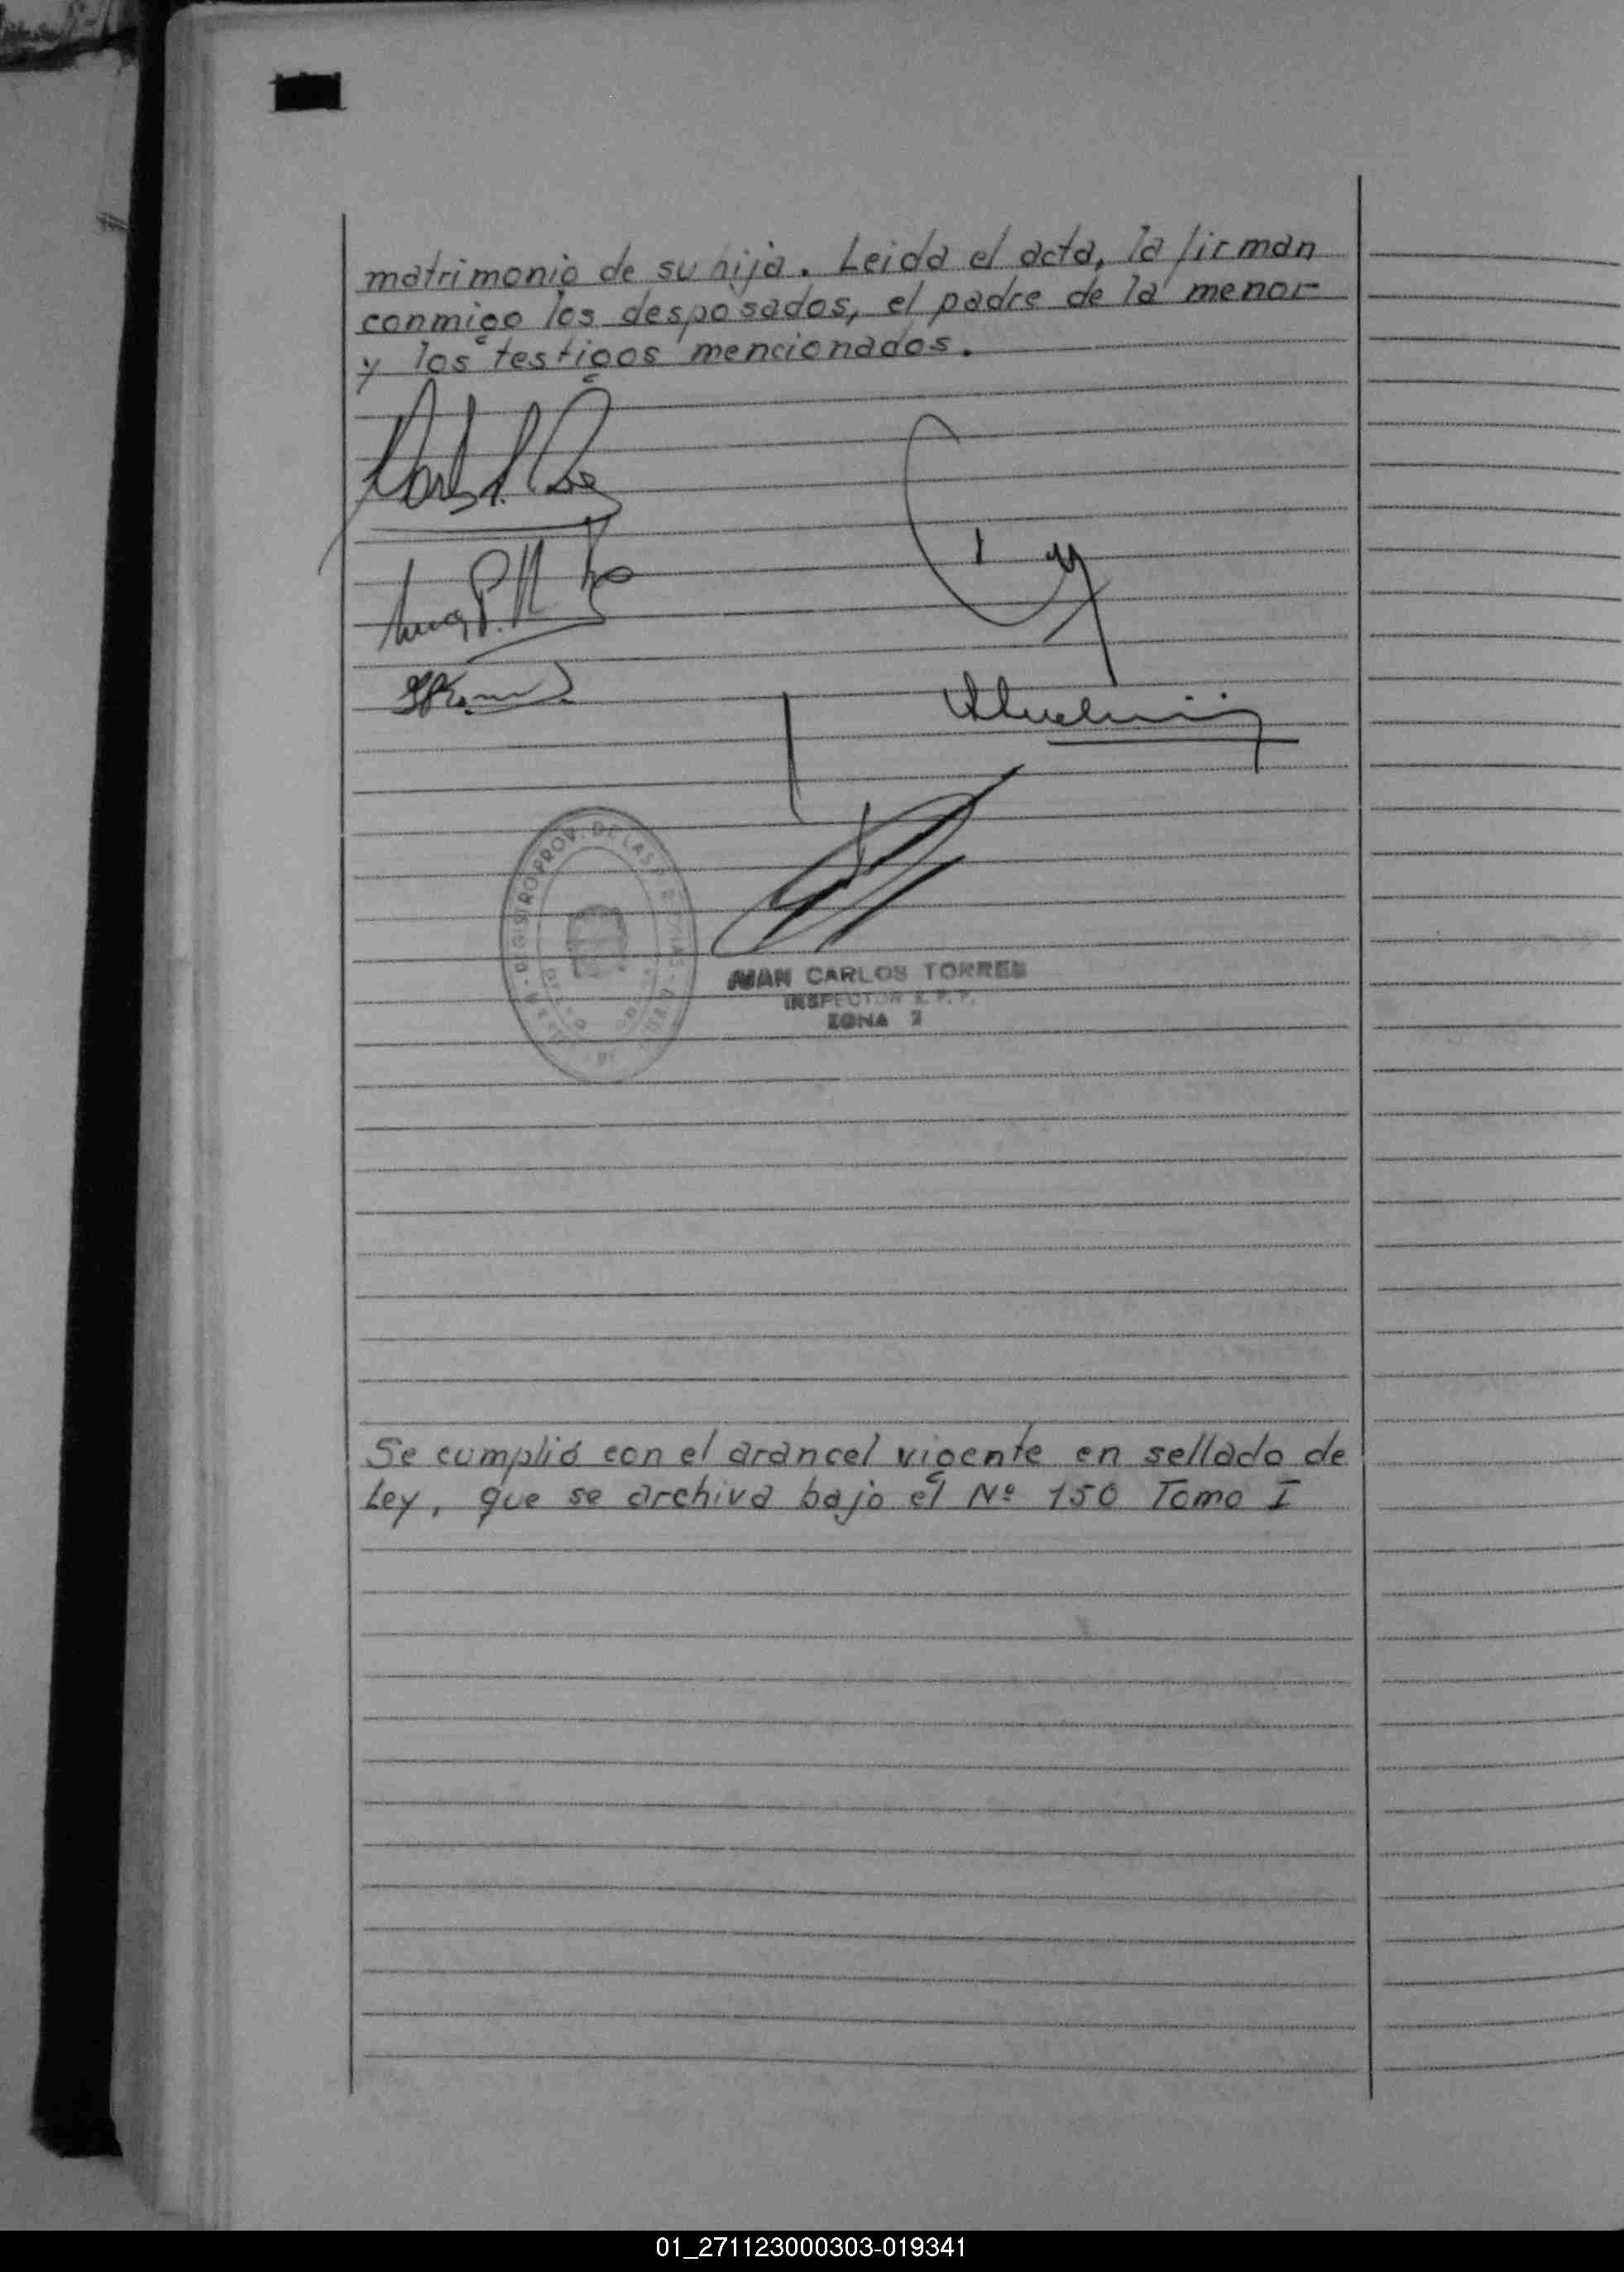 matrimonio de su hija. Leida el acta, la firman
conmigo los desposados, el padre de la menor
y los testigos mencionados.
REGISTRO PROV. DE LAS PERSONAS
JUAN CARLOS TORRES
INSPECTOR R. P. P.
ZONA 2
Se cumplió con el arancel vigente en sellado de
Ley, que se archiva bajo el Nº 150 Tomo I
01_271123000303-019341